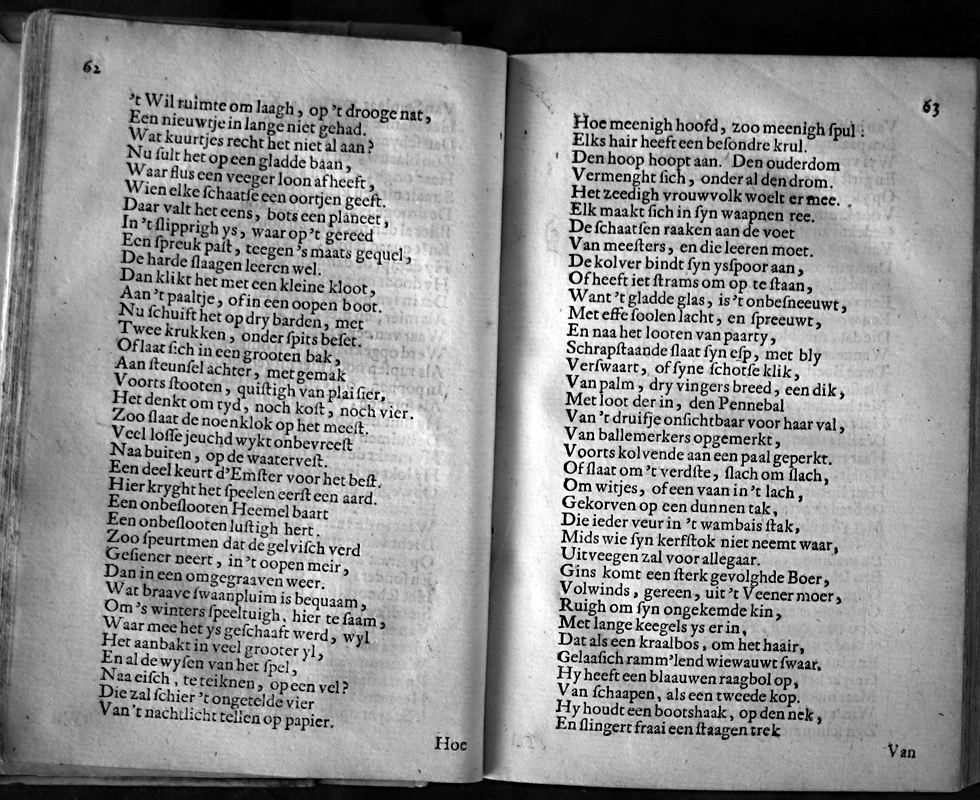 62
't Wil ruimte om laagh, op 't drooge nat,
Een nieuwtje in lange niet gehad.
Wat kuurtjes recht het niet al aan?
Nu ſult het op een gladde baan,
Waar flus een veeger loon af heeft,
Wien elke ſchaatſe een oortjen geeft.
Daar valt het eens, bots een planeet,
In 't ſlipprigh ys, waar op 't gereed
Een ſpreuk paſt, teegen 's maats gequel,
De harde ſlaagen leeren wel.
Dan klikt het met een kleine kloot,
Aan 't paaltje, of in een oopen boot.
Nu ſchuift het op dry barden, met
Twee krukken, onder ſpits beſet.
Of laat ſich in een grooten bak,
Aan ſteunſel achter, met gemak
Voorts ſtooten, quiſtigh van plaiſier,
Het denkt om tyd, noch koſt, noch vier.
Zoo ſlaat de noenklok op het meeſt.
Veel loſſe jeuchd wykt onbevreeſt
Naa buiten, op de waaterveſt.
Een deel keurt d'Emſter voor het beſt.
Hier kryght het ſpeelen eerſt een aard.
Een onbeſlooten Heemel baart
Een onbeſlooten luſtigh hert.
Zoo ſpeurt men dat de gelviſch verd
Geſiener neert, in 't oopen meir,
Dan in een omgegraaven weer.
Wat braave ſwaanpluim is bequaam,
Om 's winters ſpeeltuigh, hier te ſaam,
Waar mee het ys geſchaaft werd, wyl
Het aanbakt in veel grooter yl,
En al de wyſen van het ſpel,
Naa eiſch, te teiknen, op een vel?
Die zal ſchier 't ongetelde vier
Van 't nachtlicht tellen op papier.
Hoe
63
Hoe meenigh hoofd, zoo meenigh ſpul:
Elks hair heeft een beſondre krul.
Den hoop hoopt aan. Den ouderdom
Vermenght ſich, onder al den drom.
Het zeedigh vrouwvolk woelt er mee.
Elk maakt ſich in ſyn waapnen ree.
De ſchaatſen raaken aan de voet
Van meeſters, en die leeren moet.
De kolver bindt ſyn ysſpoor aan,
Of heeft iet ſtrams om op te ſtaan,
Want 't gladde glas, is 't onbeſneeuwt,
Met effe ſoolen lacht, en ſpreeuwt,
En naa het looten van paarty,
Schrapſtaande ſlaat ſyn eſp, met bly
Verſwaart, of ſyne ſchotſe klik,
Van palm, dry vingers breed, een dik,
Met loot der in, den Pennebal
Van 't druifje onſichtbaar voor haar val,
Van ballemerkers opgemerkt,
Voorts kolvende aan een paal geperkt.
Of ſlaat om 't verdſte, ſlach om ſlach,
Om witjes, of een vaan in 't lach,
Gekorven op een dunnen tak,
Die ieder veur in 't wambais ſtak,
Mids wie ſyn kerfſtok niet neemt waar,
Uitveegen zal voor allegaar.
Gins komt een ſterk gevolghde Boer,
Volwinds, gereen, uit 't Veener moer,
Ruigh om ſyn ongekemde kin,
Met lange keegels ys er in,
Dat als een kraalbos, om het haair,
Gelaaſich ramm'lend wiewauwt ſwaar.
Hy heeft een blaauwen raagbol op,
Van ſchaapen, als een tweede kop.
Hy houdt een bootshaak, op den nek,
En ſlingert fraai een ſtaagen trek
Van